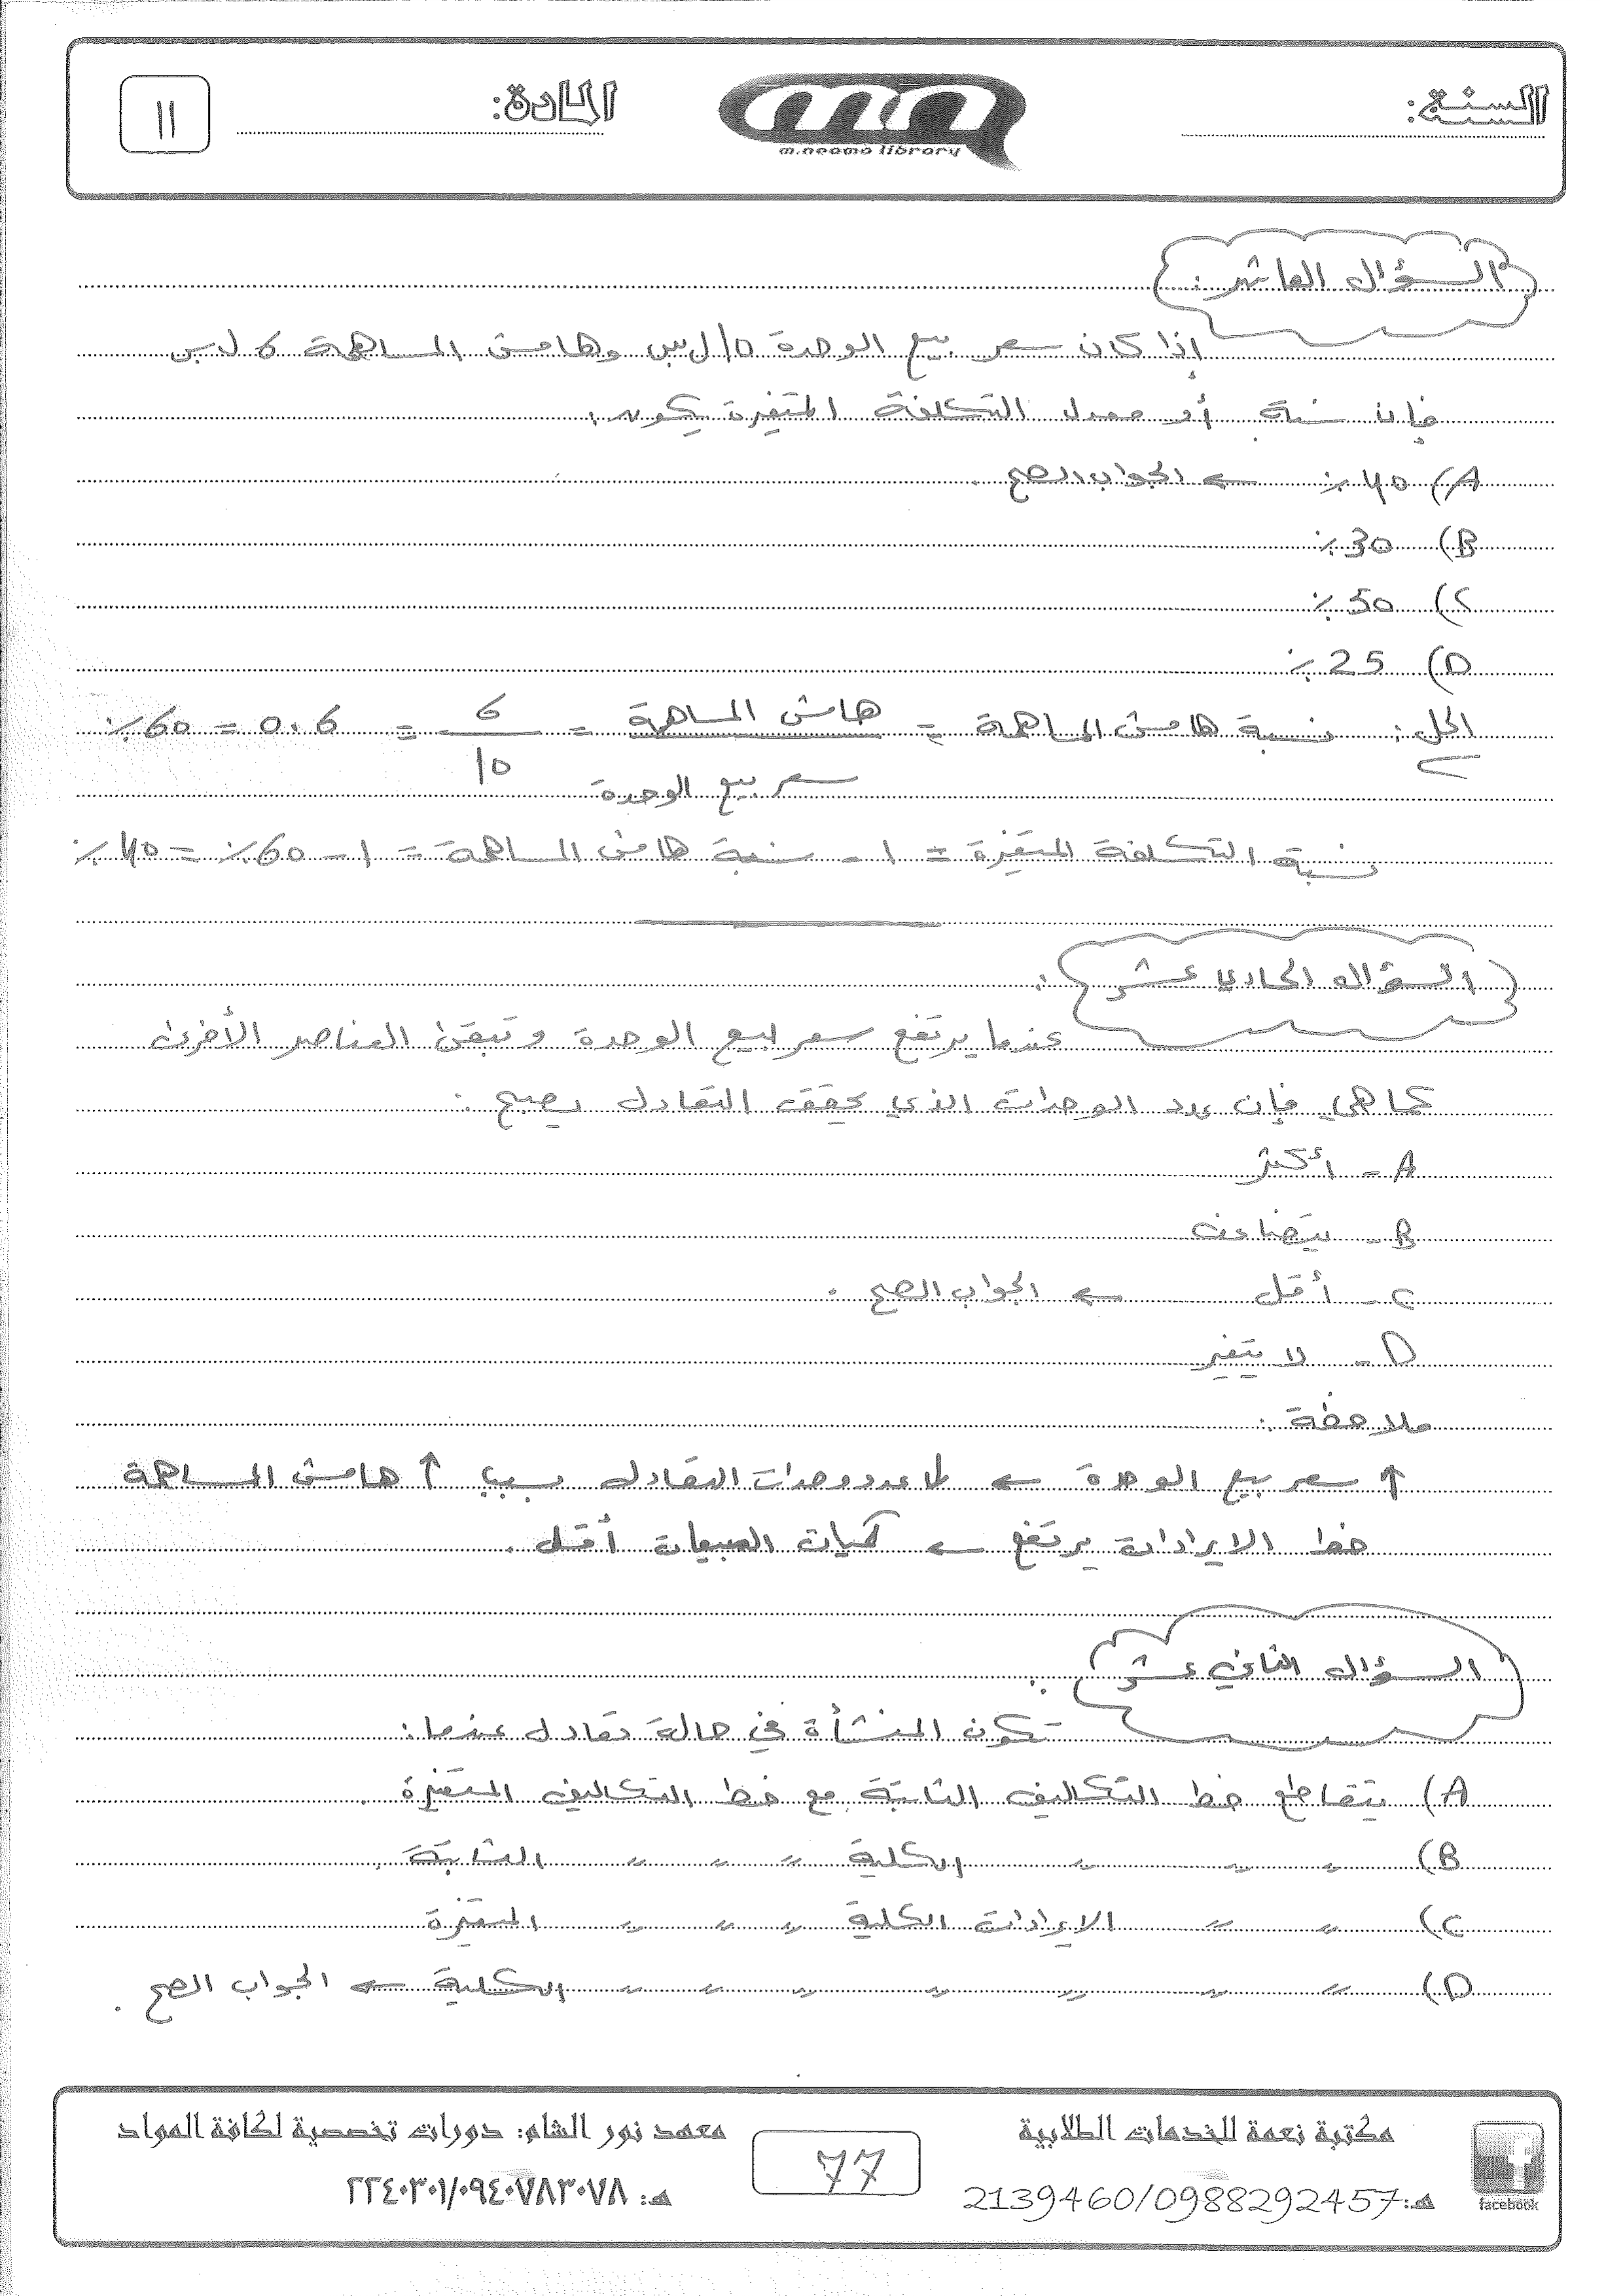 السنة:
m.neama library
المادة:
١١
السؤال العاشر:
إذا كان سعر بيع الوحدة 10 ل.س وهامش المساهمة 6 ل.س
فإن نسبة أو معدل التكلفة المتغيرة يكون:
A) 40٪ ← الجواب الصح.
B) 30٪
C) 50٪
D) 25٪
الحل: نسبة هامش المساهمة = هامش المساهمة / سعر بيع الوحدة = 6 / 10 = 0.6 = 60٪
نسبة التكلفة المتغيرة = 1 - نسبة هامش المساهمة = 1 - 60٪ = 40٪
السؤال الحادي عشر:
عندما يرتفع سعر لبيع الوحدة وتبقى العناصر الأخرى
كما هي فإن عدد الوحدات الذي يحقق التعادل يصبح:
A - أكثر
B - يتضاعف
C - أقل ← الجواب الصح.
D - لا يتغير
ملاحظة:
↑ سعر بيع الوحدة ← ↓ عدد وحدات التعادل بسبب ↑ هامش المساهمة
خط الايرادات يرتفع ← كميات المبيعات أقل.
السؤال الثاني عشر:
تكون المنشأة في حالة تعادل عندما:
A) يتقاطع خط التكاليف الثابتة مع خط التكاليف المتغيرة.
B) 〃 〃 〃 الكلية 〃 〃 〃 الثابتة.
C) 〃 〃 الايرادات الكلية 〃 〃 〃 المتغيرة
D) 〃 〃 〃 〃 〃 〃 〃 الكلية ← الجواب الصح.
facebook
مكتبة نعمة للخدمات الطلابية
هـ: 2139460/0988292457
77
معهد نور الشام: دورات تخصصية لكافة المواد
هـ: ٢٢٤٠٣٠١/٠٩٤٠٧٨٣٠٧٨